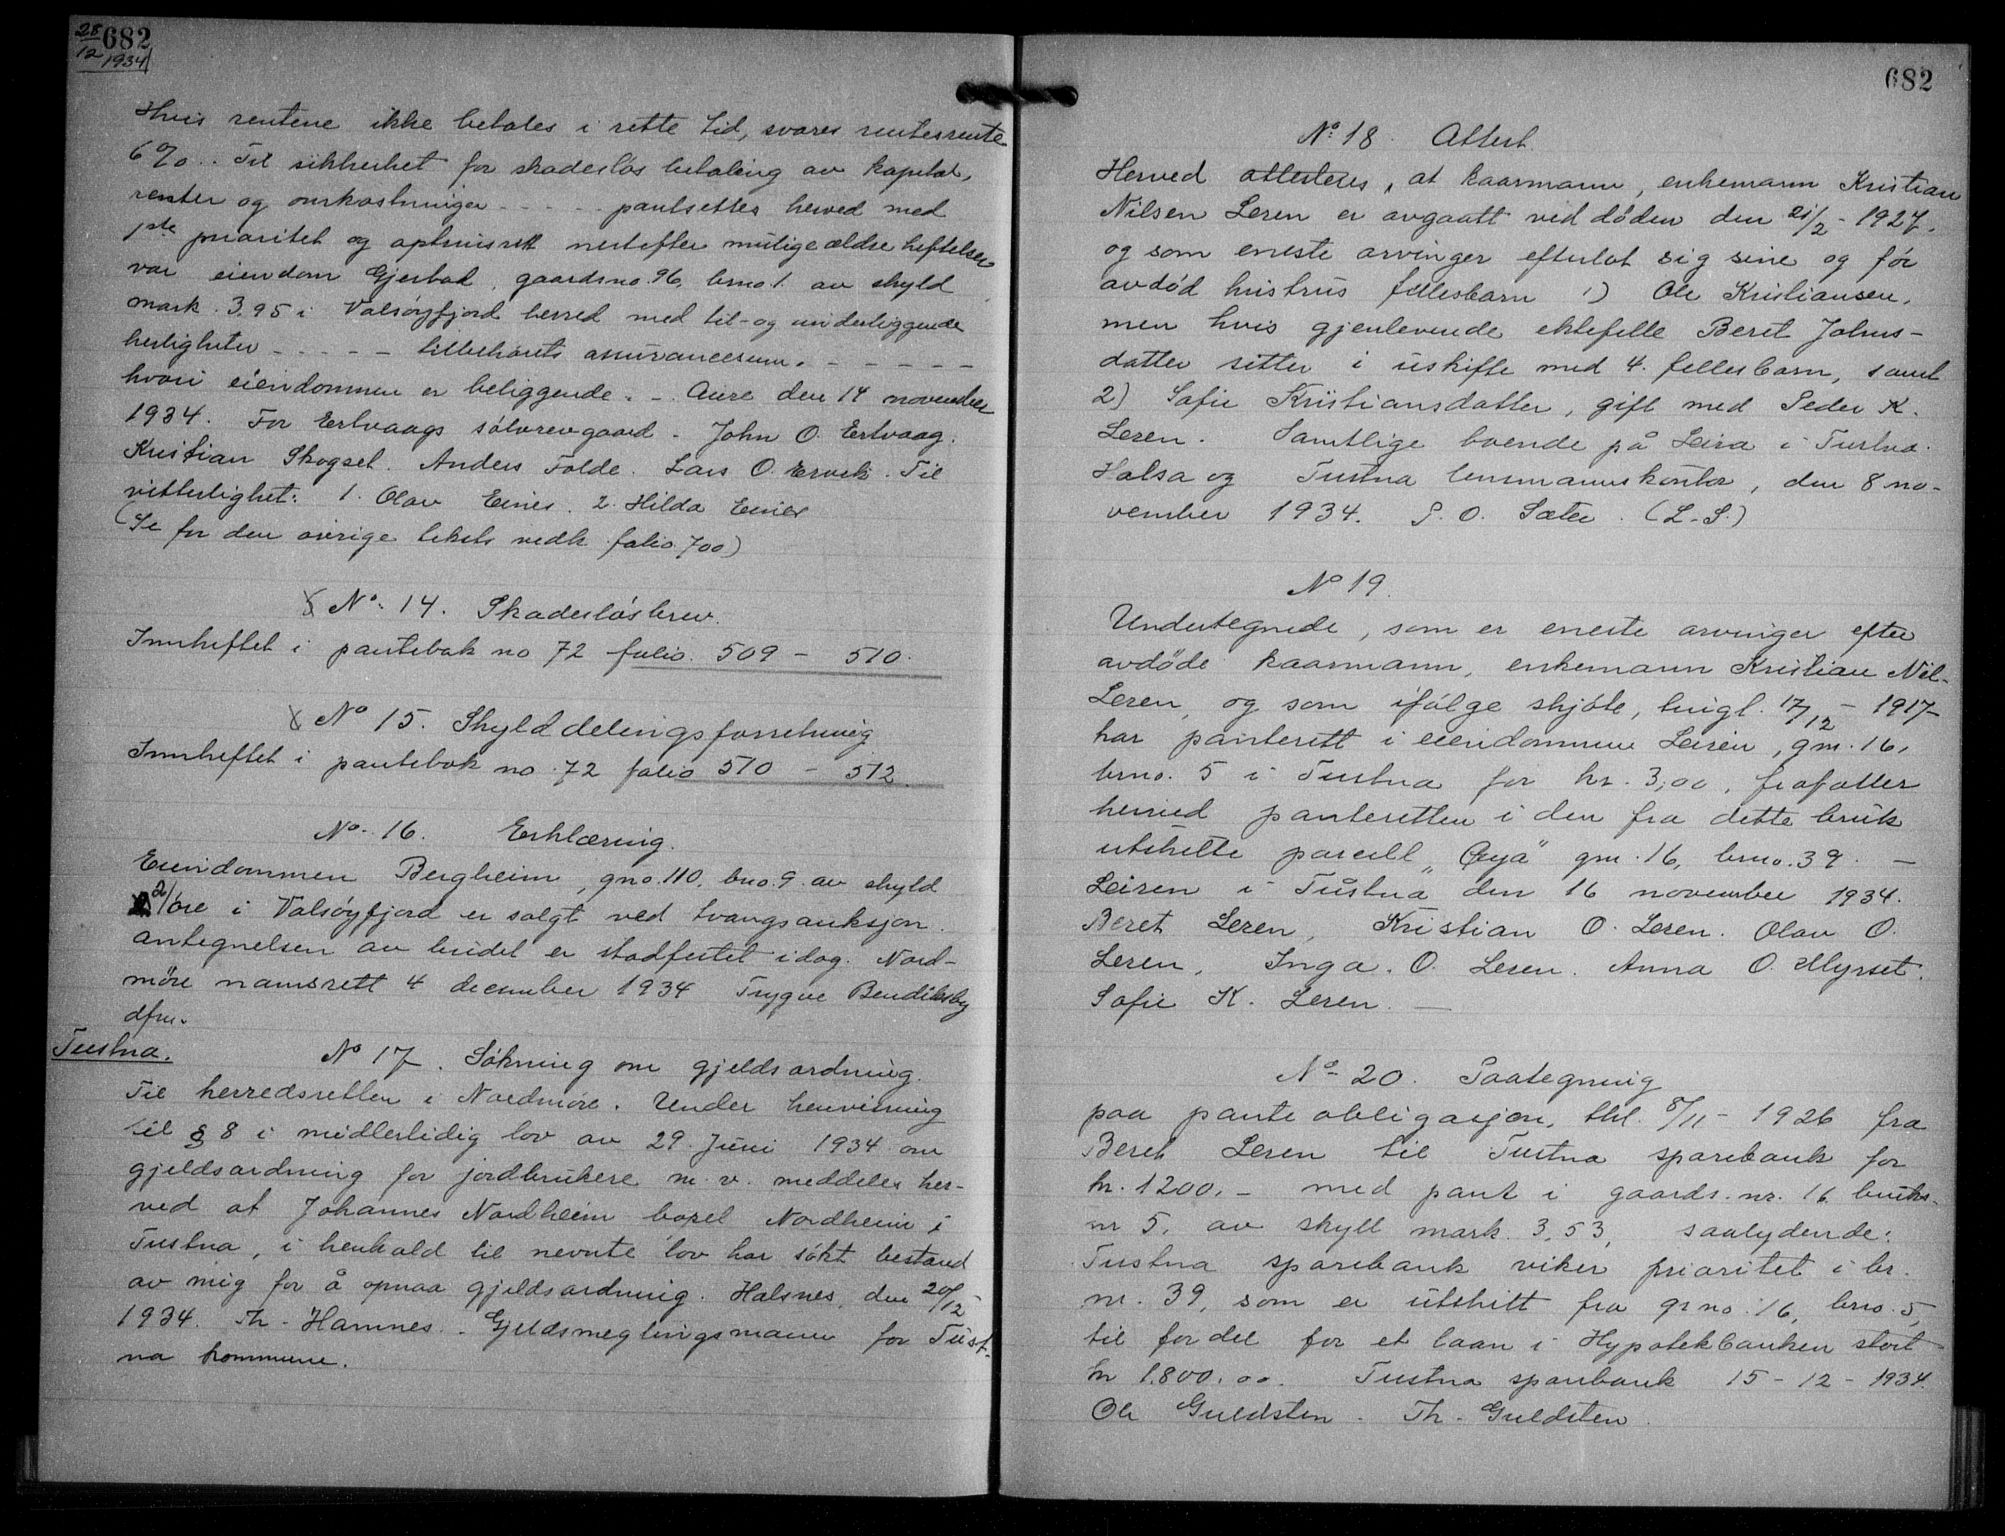 28/12 1934
682
Hvis rentene ikke betales i rette tid, svares rentesrente
6%.. Til sikkerhet for skadesløs betaling av kapital,
renter og omkostninger - - - - - pantsettes herved med
1ste prioritet og oprinsrett nestefter mulige ældre heftelser
vor eiendom Gjerbad, gaardsno. 96, brno. 1. av skyld
mark. 3,95 i Valsøyfjord herred med til- og underliggende
herligheter - - - - - tilbehørets assurancesum. - - - - - -
hvori eiendommen er beliggende. - Aure den 14 november
1934. For Ertvaags sølvrevgaard - John O. Ertvaag.
Kristian Skogset. Anders Folde. Lars O. Ervik. Til
vitterlighet: 1. Olav Eines. 2. Hilda Eines
(Se for den øvrige teksts vedk. folio 700)
No. 14. Skadesløsbrev.
Innheftet i pantebok no 72 folio. 509 - 510.
No 15. Skylddelingsforretning
Innheftet i pantebok no. 72 folio 510 - 512.
No. 16. Erklæring.
Eiendommen Bergheim, gno. 110, bno. 9. av skyld
2/øre i Valsøyfjord er solgt ved tvangsauksjon.
antegnelsen av budet er stadfestet idag. Nord-
møre namsrett 4 december 1934 Trygve Bendiksby
dfm.
Tustna.
No 17. Søkning om gjeldsordning.
Til herredsretten i Nordmøre. Under henvisning
til § 8 i midlertidig lov av 29. Juni 1934 om
gjeldsordning for jordbrukere m. v. meddeles her-
ved at Johannes Nordheim bopel Nordheim i
Tustna, i henhold til nevnte lov har søkt bestand
av mig for å opnaa gjeldsordning. Halsnes, den 20/12-
1934. Th. Hamnes. - Gjeldsmeglingsmann for Tust-
na kommune.
682
No. 18. Attest
Herved attesteres, at kaarmann, enkemann Kristian
Nilsen Leren er avgaatt ved døden den 21/2 - 1927.
og som eneste arvinger efterlot sig sine og før
avdød hustrus fellesbarn 1) Ole Kristiansen,
men hvis gjenlevende ektefelle Beret Johns-
datter sitter i uskifte med 4. fellesbarn, samt
2) Sofie Kristiansdatter, gift med Peder K.
Leren. Samtlige boende på Leira i Tustna.
Halsa og Tustna lensmannskontor, den 8 no-
vember 1934. P. O. Sæter. (L.S.)
No 19.
Undertegnede, som er eneste arvinger efter
avdøde kaarmann, enkemann Kristian Nil-
Leren, og som ifølge skjøte, tingl. 17/12 - 1917
har panterett i eiendommen Leiren, gnr. 16,
brno. 5 i Tustna for kr. 3,00, frafaller
herved panteretten i den fra dette bruk
utskilte parcell "Øyå" gnr. 16, brno. 39. -
Leiren i Tustna den 16 november 1934.
Beret Leren, Kristian O. Leren. Olav O.
Leren, Inga. O. Leren. Anna O. Myrset.
Sofie K. Leren. -
No. 20. Paategning
paa panteobligasjon, tgl. 8/11 - 1926 fra
Beret Leren til Tustna sparebank for
kr. 1200.- med pant i gaards. nr. 16 bruks-
nr 5, av skyll mark. 3,53, saalydende:
Tustna sparebank viker prioritet i br.
nr. 39, som er utskilt fra grno. 16, brno. 5,
til fordel for et laan i Hypotekbanken stort
kr 1.800.00. Tustna sparebank 15 - 12 - 1934.
Ole Guldsten - Th. Guldsten.